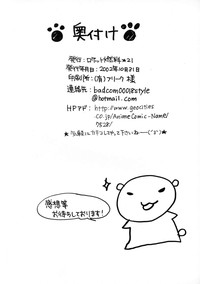 奥付け
発行:ロケット燃料★21
発行年月日:2002年10月21日
印刷所:(有)フリーク 様
連絡先:badcom0001@style
@hotmail.com
HPアド:http://www.geocities
.co.jp/AnimeComic-Name/
7528/
感想等
お待ちしております!